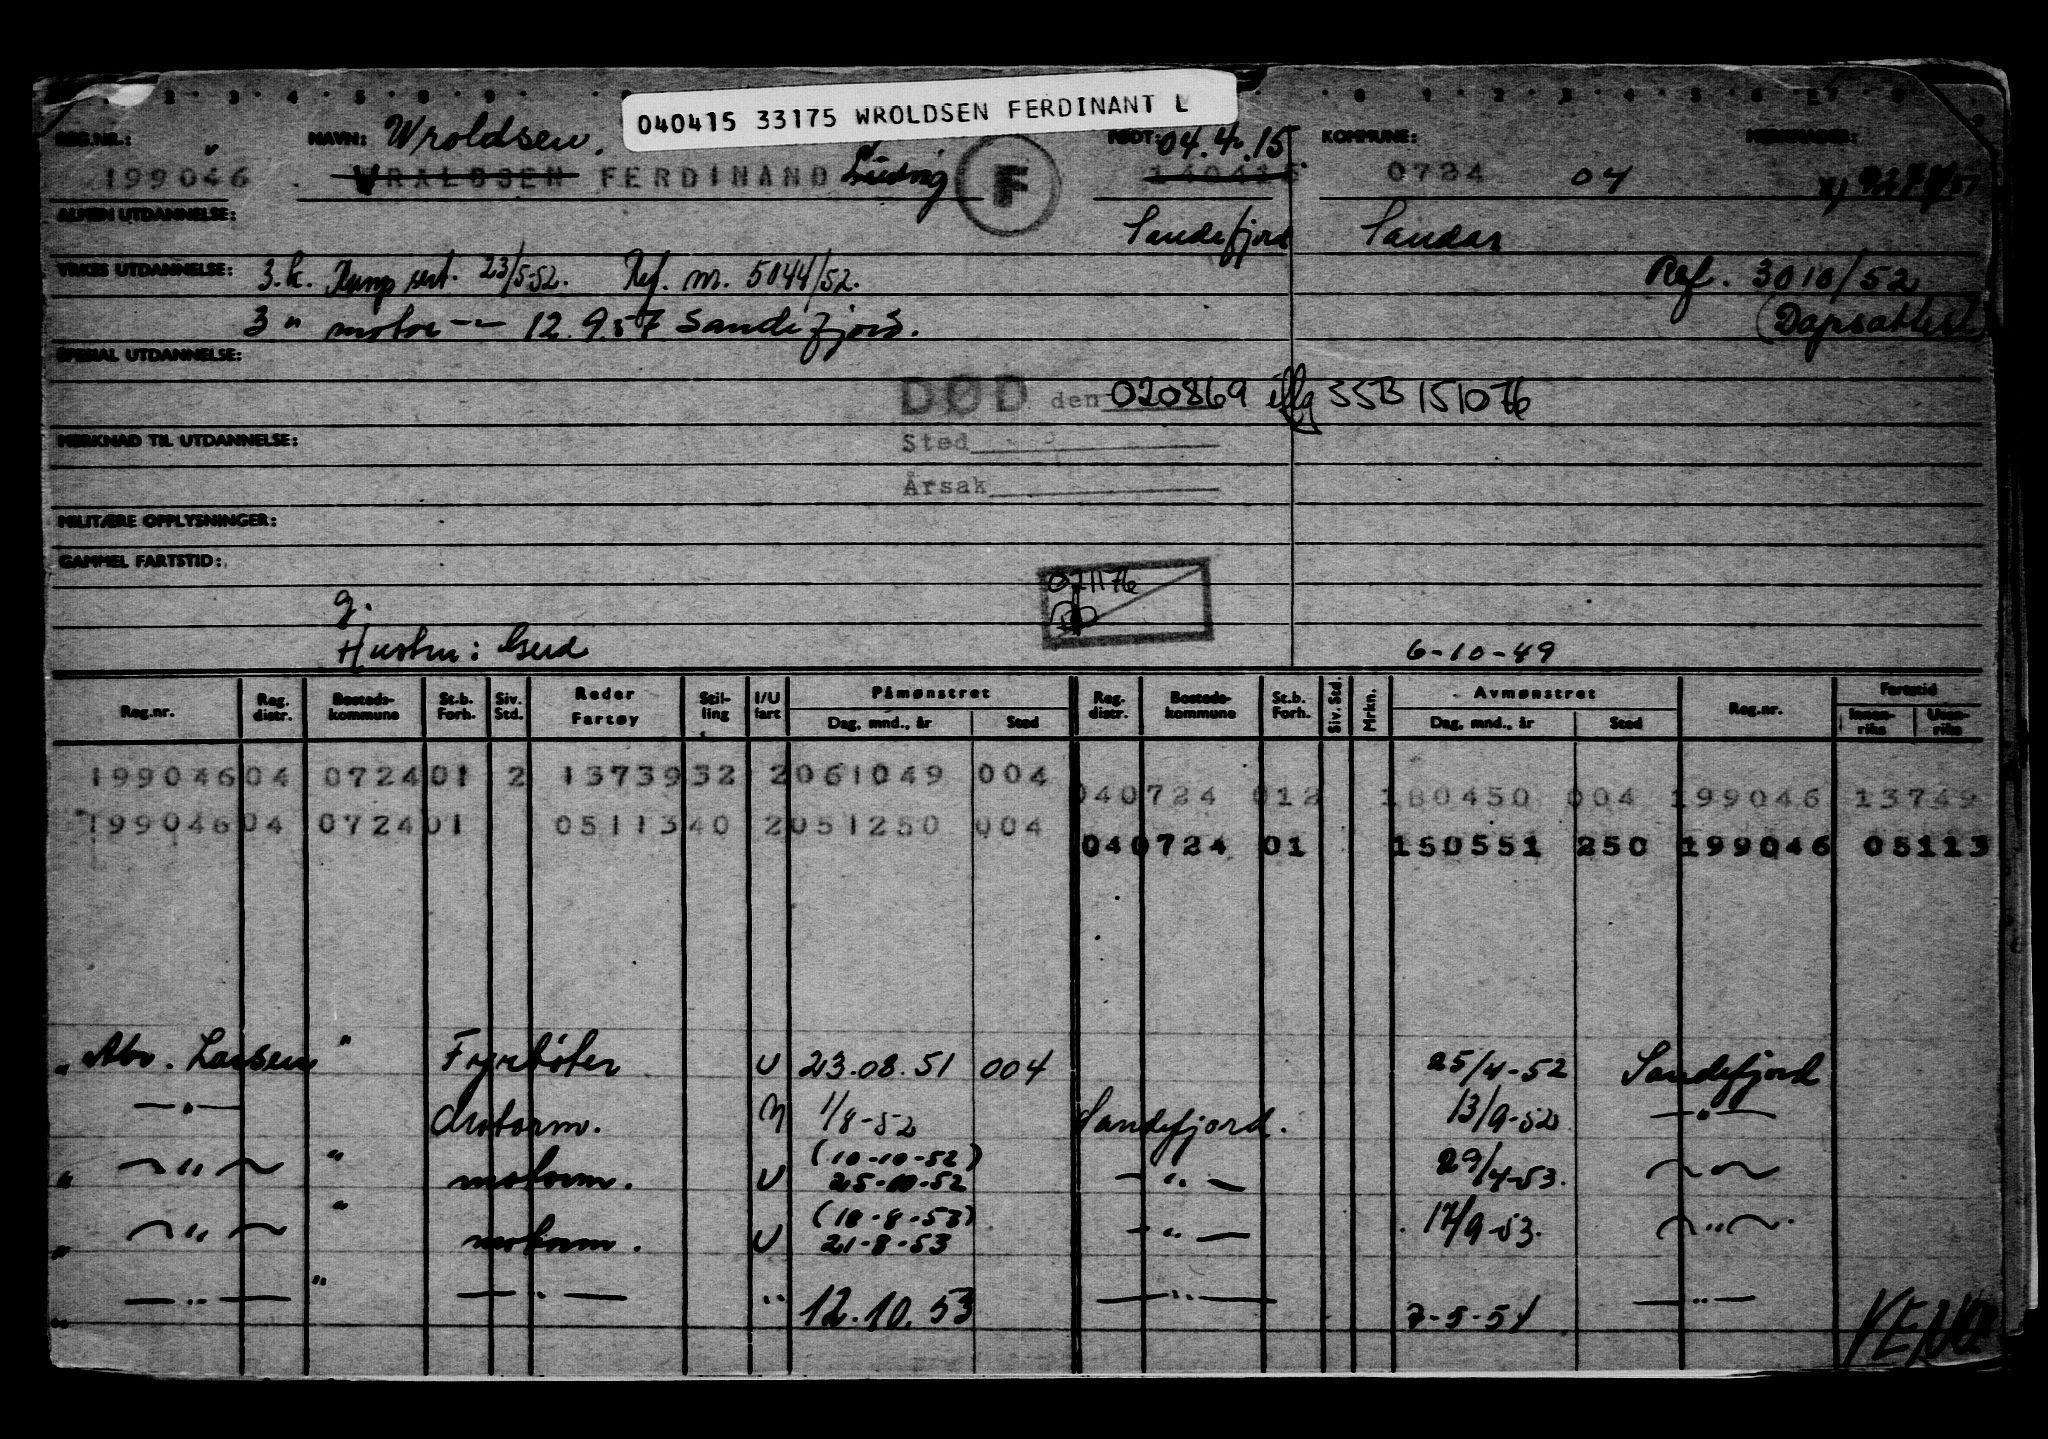 040415 33175 WROLDSEN FERDINANT L
REG.NR.: NAVN: Wroldsen. FØDT: 04.4.15 KOMMUNE: MERKNADER:
199046 WRALDSEN FERDINAND Ludvig F 140415 0724 04
ALMEN UTDANNELSE: Sandefjord Sandar
YRKES UTDANNELSE: 3.k. sert. 23/5-52. Ref. nr. 5044/52. Ref. 3010/52
3 " motor — 12.9.57 Sandefjord. (Dåpsattest)
SPESIAL UTDANNELSE:
DØD den 020869 iflg SSB 151076
MERKNAD TIL UTDANNELSE: Sted
Årsak
MILITÆRE OPPLYSNINGER:
GAMMEL FARTSTID:
021176
g.
Hustru: Gerd 6-10-49
Reg.nr. Reg. distr. Bosteds-kommune St.b. Forh. Siv. Std. Reder Fartøy Stil-ling I/U fart Påmønstret Dag, mnd., år Sted Reg. distr. Bosteds-kommune St.b. Forh. Siv. Std. Mrkn. Avmønstret Dag, mnd., år Sted Reg.nr. Fartstid Innen-riks Uten-riks
199046 04 0724 01 2 13739 32 2 061049 004
040724 012 180450 004 199046 13749
199046 04 0724 01 05113 40 2 051250 004
040724 01 150551 250 199046 05113
" Abr. Larsen " Fyrbøter U 23.08.51 004 25/4-52 Sandefjord
—"— Motorm. N 1/8-52 Sandefjord. 13/9-52 —"—
(10-10-52)
" —"— " motorm. U 25-10-52 —"— 29/4-53. —"—
(18-8-53)
" —"— " motorm. U 21-8-53 —"— 17/9-53. —"—
" —"— " —"— " 12.10.53 —"— 7-5-54 —"—
VEND